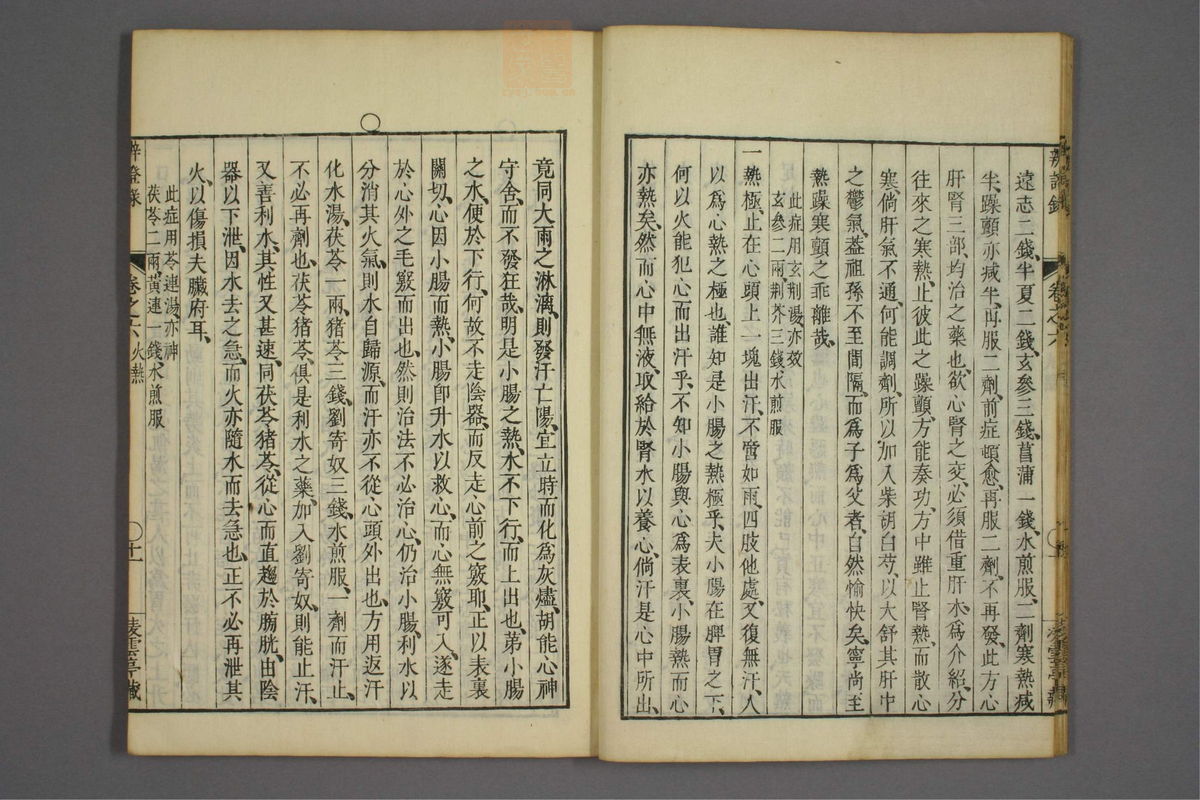 遠志二錢、半夏二錢、玄參三錢、菖蒲一錢、水煎服、二劑寒熱减
半、躁顫亦减半、再服二劑、前症頓愈、再服二劑、不再發、此方心
肝腎三部、均治之藥也、欲心腎之交、必須借重肝木、爲介紹、分
往來之寒熱、止彼此之躁顫、方能奏功、方中雖止腎熱、而散心
寒、倘肝氣不通、何能調劑、所以加入柴胡白芍、以大舒其肝中
之鬱氣、葢祖孫不至間隔、而爲子爲父者、自然愉快矣、寧尚至
熱躁寒顫之乖離哉、
此症用玄荆湯亦效
玄參二兩、荆芥三錢、水煎服
一熱極、止在心頭上一塊出汗、不啻如雨、四肢他處、又復無汗、人
以爲心熱之極也、誰知是小腸之熱極乎、夫小腸在脾胃之下、
何以火能犯心而出汗乎、不知小腸與心爲表裏、小腸熱而心
亦熱矣、然而心中無液、取給於腎水以養心、倘汗是心中所出、
竟同大雨之淋漓、則發汗亡陽、宜立時而化爲灰燼、胡能心神
守舍、而不發狂哉、明是小腸之熱、水不下行、而上出也、第小腸
之水、便於下行、何故不走陰器、而反走心前之竅耶、正以表裏
關切、心因小腸而熱、小腸卽升水以救心、而心無竅可入、遂走
於心外之毛竅而出也、然則治法不必治心、仍治小腸利水以
分消其火氣、則水自歸源、而汗亦不從心頭外出也、方用返汗
化水湯、茯苓一兩、猪苓三錢、劉寄奴三錢、水煎服、一劑而汗止、
不必再劑也、茯苓猪苓、俱是利水之藥、加入劉寄奴、則能止汗、
又善利水、其性又甚速、同茯苓猪苓、從心而直趨於膀胱、由陰
器以下泄、因水去之急、而火亦隨水而去急也、正不必再泄其
火、以傷損夫臟府耳、
此症用苓連湯、亦神
茯苓二兩、黃連一錢、水煎服
卷之六 火熱
十一
凌雲亭藏